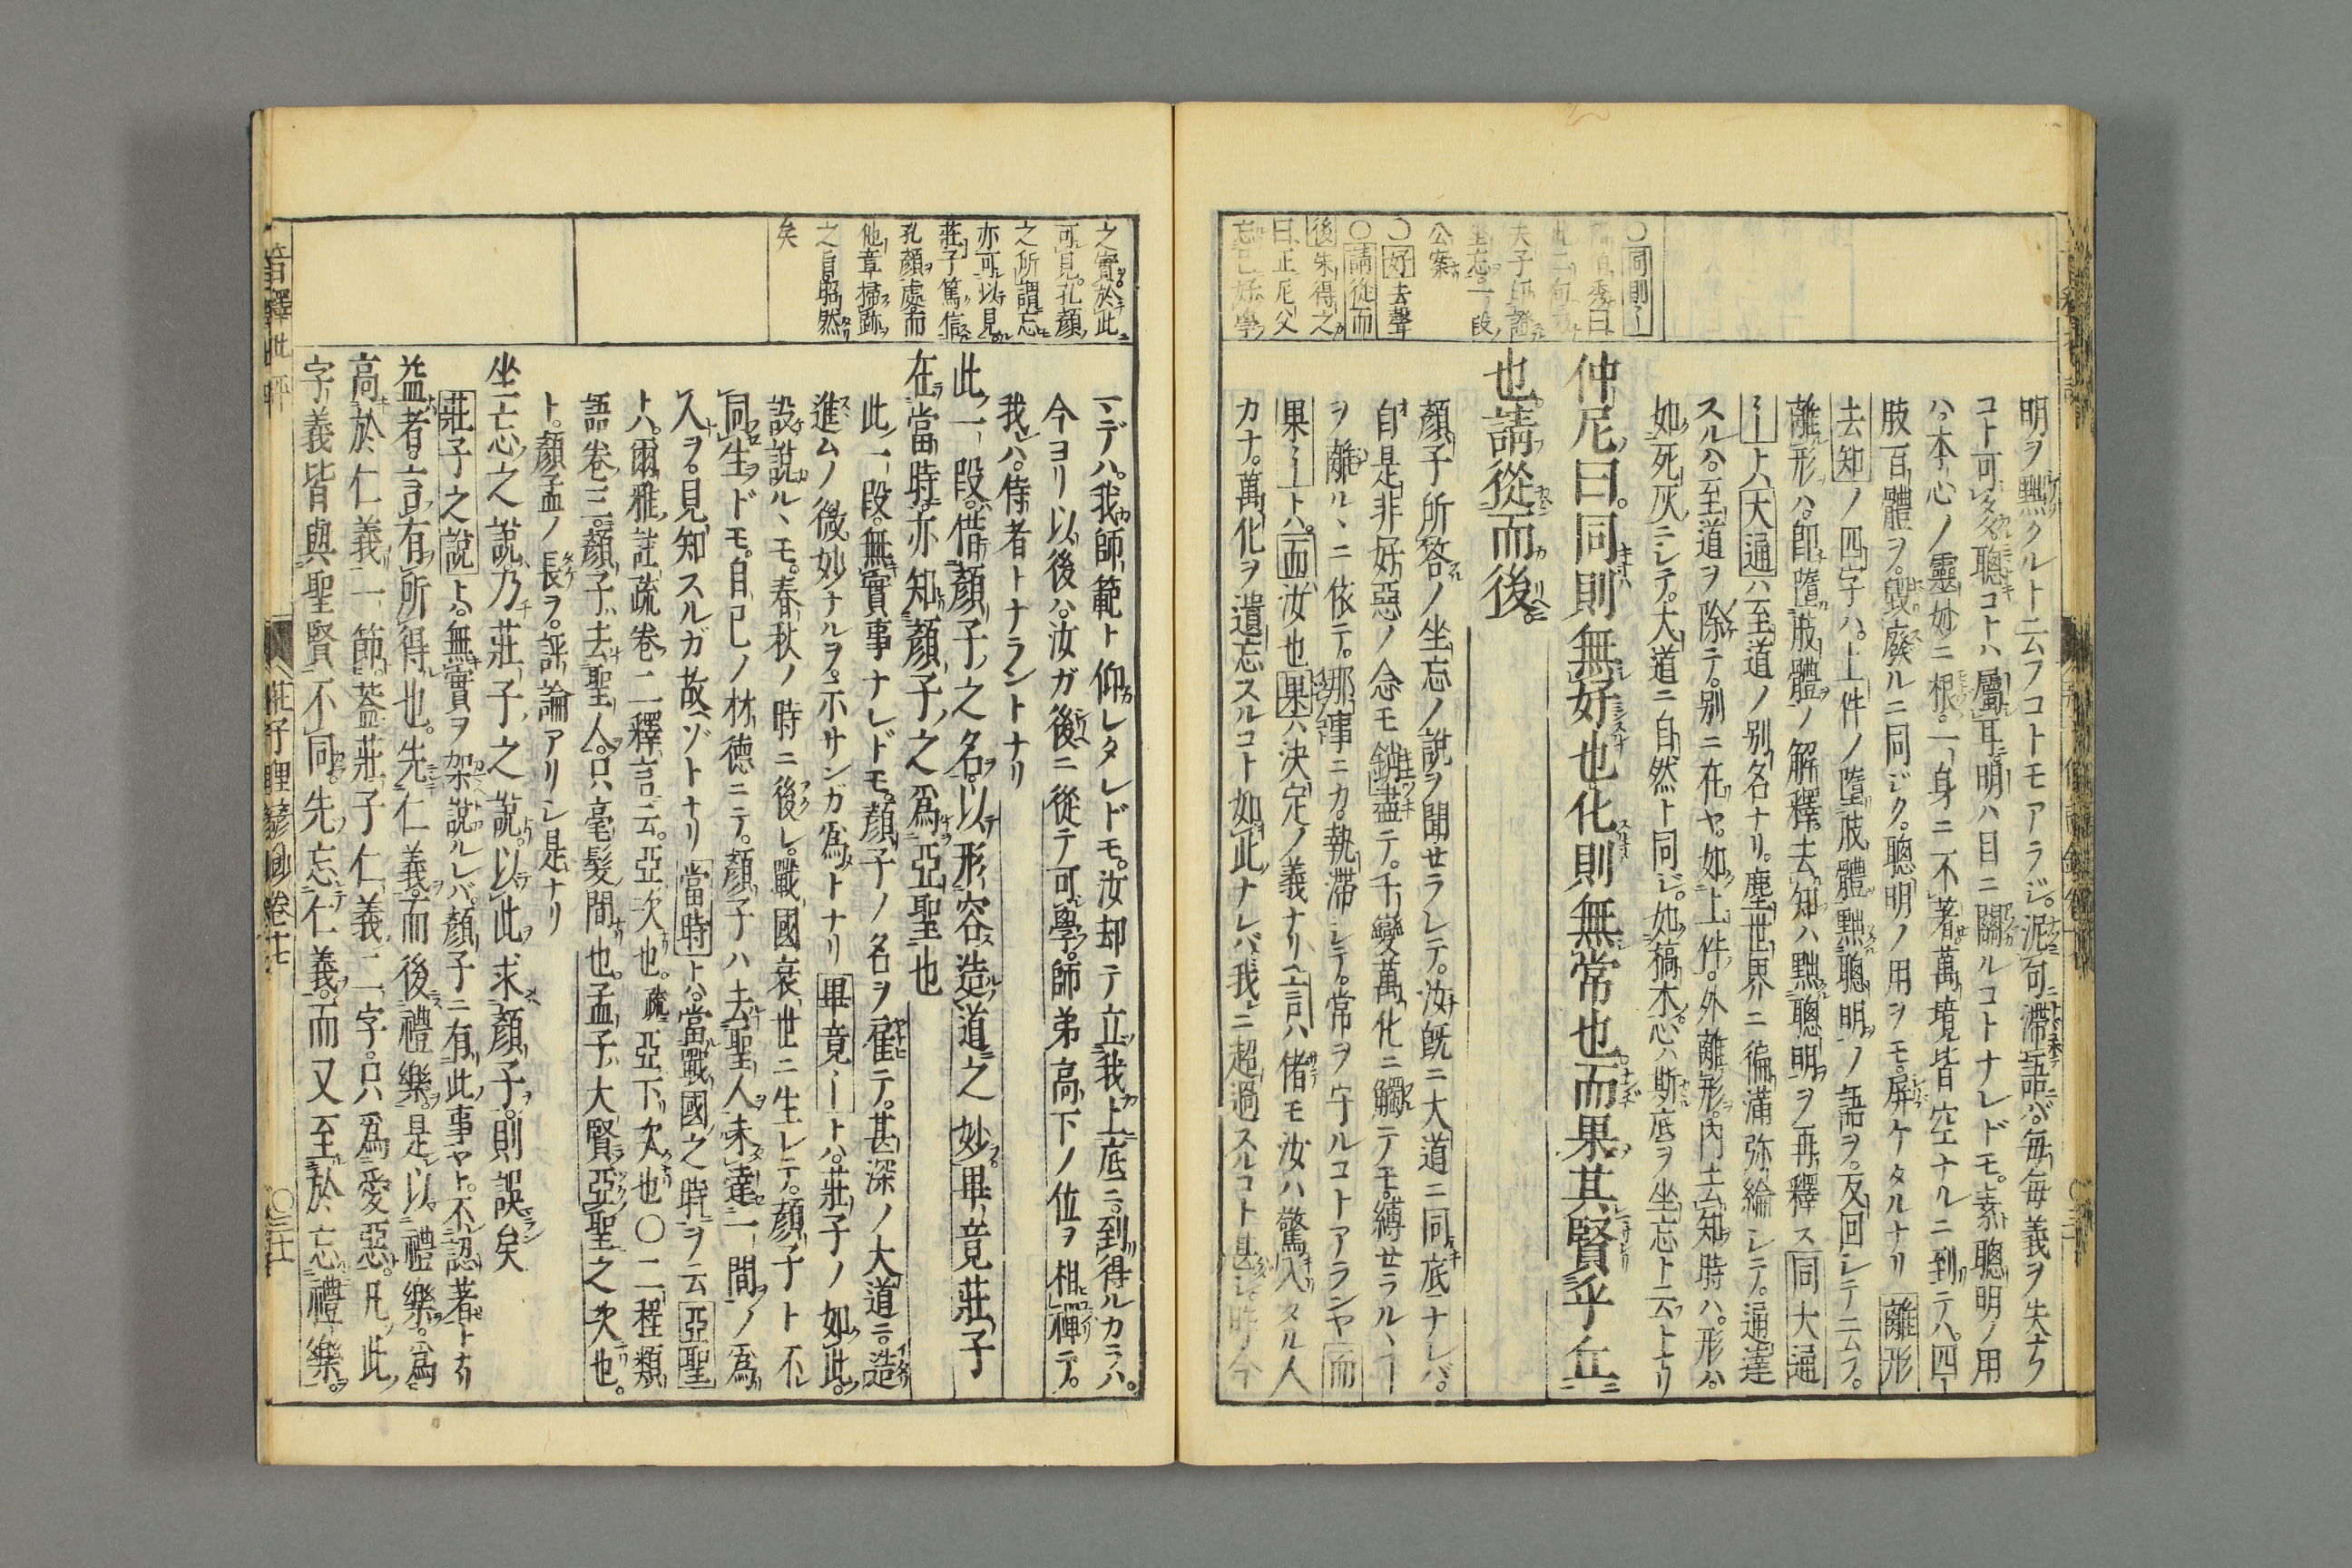 〇同則〡
夫子印證
坐忘一段
公案
〇好去聲
〇請從而
後朱得之
曰正尼父
忘己好學
明ヲ黜クルト云フコトモアラジ。泥句滯語バ。每每義ヲ失ナフ
コト可多聰コトハ屬耳明ハ目ニ關ルコトナレドモ。素聰明ノ用
ハ本心ノ靈妙ニ根。一身ニ不著萬境皆空ナルニ到テハ。四〡
肢百體ヲ。毀廢ルニ同ジク。聰明ノ用ヲモ。屏ケタルナリ離形
去知ノ四字ハ。上件ノ墮肢體黜聰明ノ語ヲ。反回シテ云フ。
離形ハ。卽墮肢體ノ解釋。去知ハ黜聰明ヲ再釋ス同大通
〡トハ大通ハ至道ノ別名ナリ。塵世界ニ徧滿弥綸シテ。通達
スルハ。至道ヲ除ニテ。別ニ在ヤ。如上件。外離形。內去知時ハ。形ハ
如死灰ニシテ。大道ニ自然ト同ジ。如槁木心ハ斯底ヲ坐忘ト云フトナリ
仲尼曰。同則無好也化則無常也。而果其賢乎丘
也。請從而後。
顏子所答ノ坐忘ノ說ヲ聞セラレテ。汝旣ニ大道ニ同底ナレバ。
自是非好惡ノ念モ銷盡テ。千變萬化ニ觸テモ。縛セラルヽ〡
ヲ離ルヽニ依テ。那事ニカ。執滯シテ。常ヲ守ルコトアランヤ而
果〡トハ。而汝也果ハ決定ノ義ナリ言ハ偖モ汝ハ驚入タル人
カナ。萬化ヲ遺忘スルコト如此ナレバ。我ニ超過スルコト甚シ。昨今
之實於此
可見。孔顏
之所謂忘
亦可以見
莊子篤信
孔顏處而
他章掃跡
之旨昭然
矣
マデハ。我師範ト仰レタレドモ。汝却テ立我上底ニ到得ルカラハ。
今ヨリ以後ハ汝ガ後ニ從テ可學。師弟高下ノ位ヲ相禪テ。
我ハ侍者トナラントナリ
此一段。借顏子之名。以形容造道之妙。畢竟莊子
在當時。亦知顏子之爲亞聖也
此一段。無實事ナレドモ。顏子ノ名ヲ雇テ。甚深ノ大道ニ造
進ムノ微妙ナルヲ。示サンガ爲トナリ畢竟〡トハ。莊子ノ如此。
設說ルヽモ。春秋ノ時ニ後レ。戰國衰世ニ生レテ。顏子ト不
同生ヲドモ。自己ノ材德ニテ。顏子ハ去聖人未達一間ノ爲
人ヲ。見知スルガ故ゾトナリ當時トハ。當戰國之時ヲ云亞聖
トハ。爾雅註疏卷二釋言云。亞次也。疏亞下次也〇二程類
語卷三。顏子去聖人。只毫髮間也。孟子大賢亞聖之次也。
ト。顏孟ノ長ヲ。評論アリシ是ナリ
坐忘之說。乃莊子之說。以此求顏子。則誤矣
莊子之說トハ。無實ヲ架說ルレバ。顏子ニ有此事ヤト。不認著トナリ
益者。言有所得也。先仁義。而後禮樂。是以禮樂。爲
高於仁義一節。蓋莊子仁義二字。只爲愛惡。凡此
字義皆與聖賢不同。先忘仁義。而又至於忘禮樂。
莊子俚諺鈔卷十七